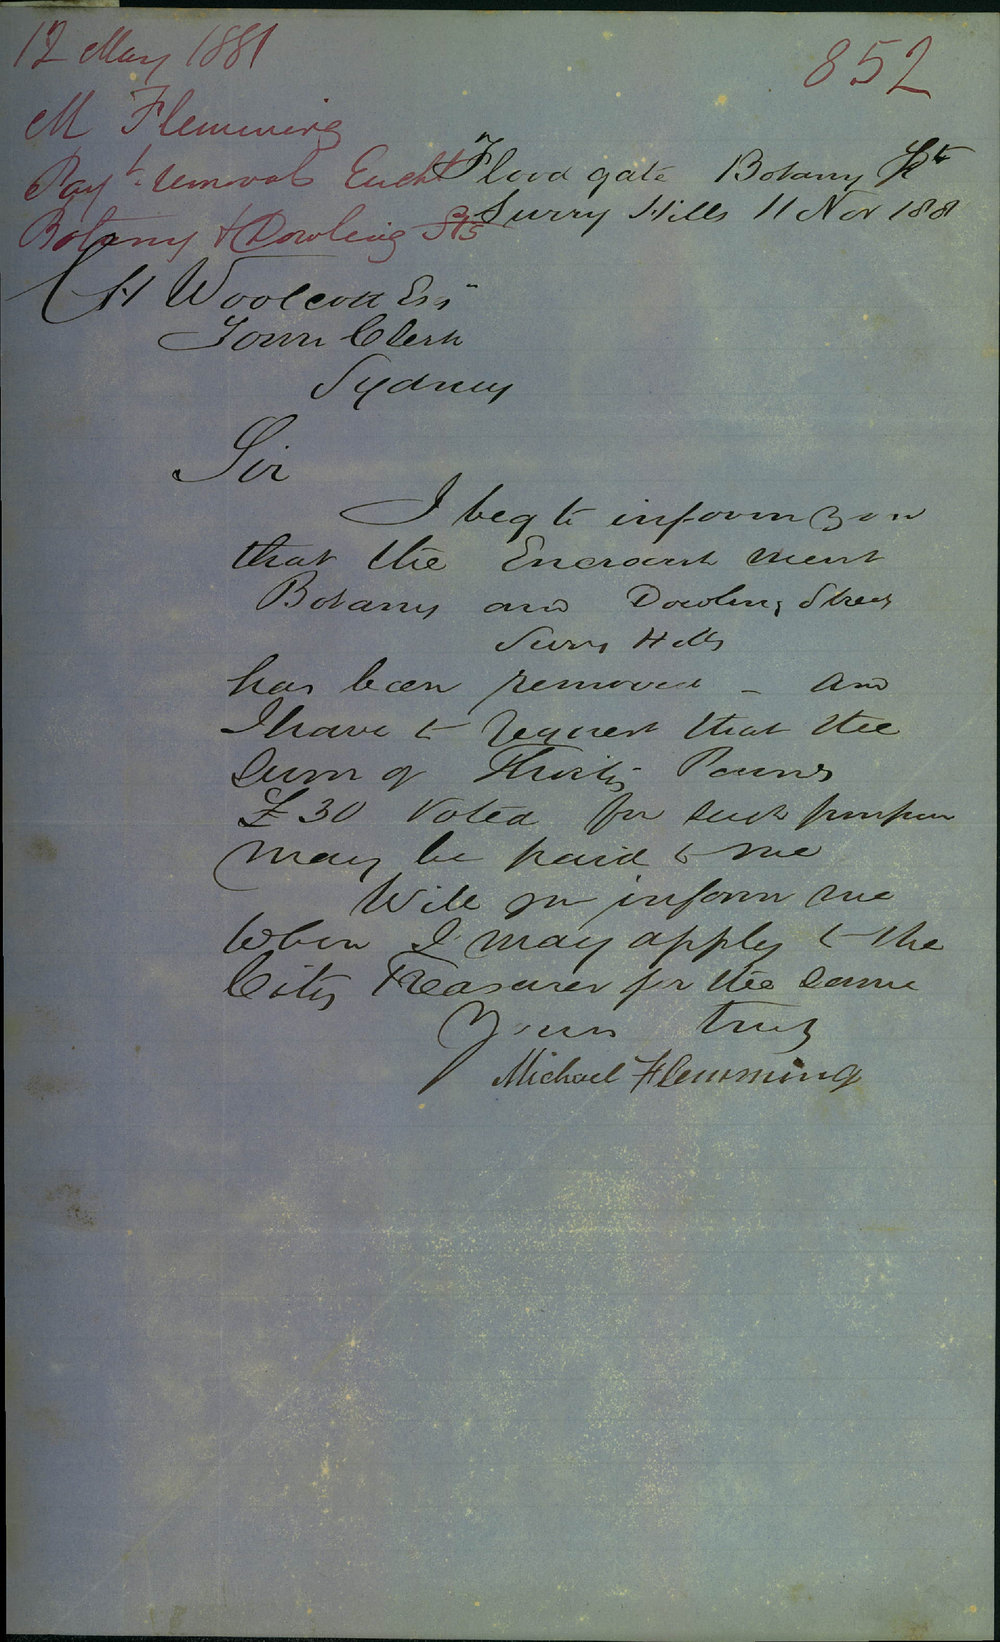 12 May 1881
852
M Flemming
Payt. removal Encht
Botany & Dowling Sts
Flood gate Botany St
Surry Hills 11 Nov 1881
C H Woolcott Esq
Town Clerk
Sydney
Sir
I beg to inform you
that the Encroachment
Botany and Dowling Street
Surry Hills
has been removed - and
I have to request that the
sum of Thirty Pounds
£30 Voted for such purpose
may be paid to me
Will you inform me
when I may apply to the
City Treasurer for the same
Yours truly
Michael Flemming